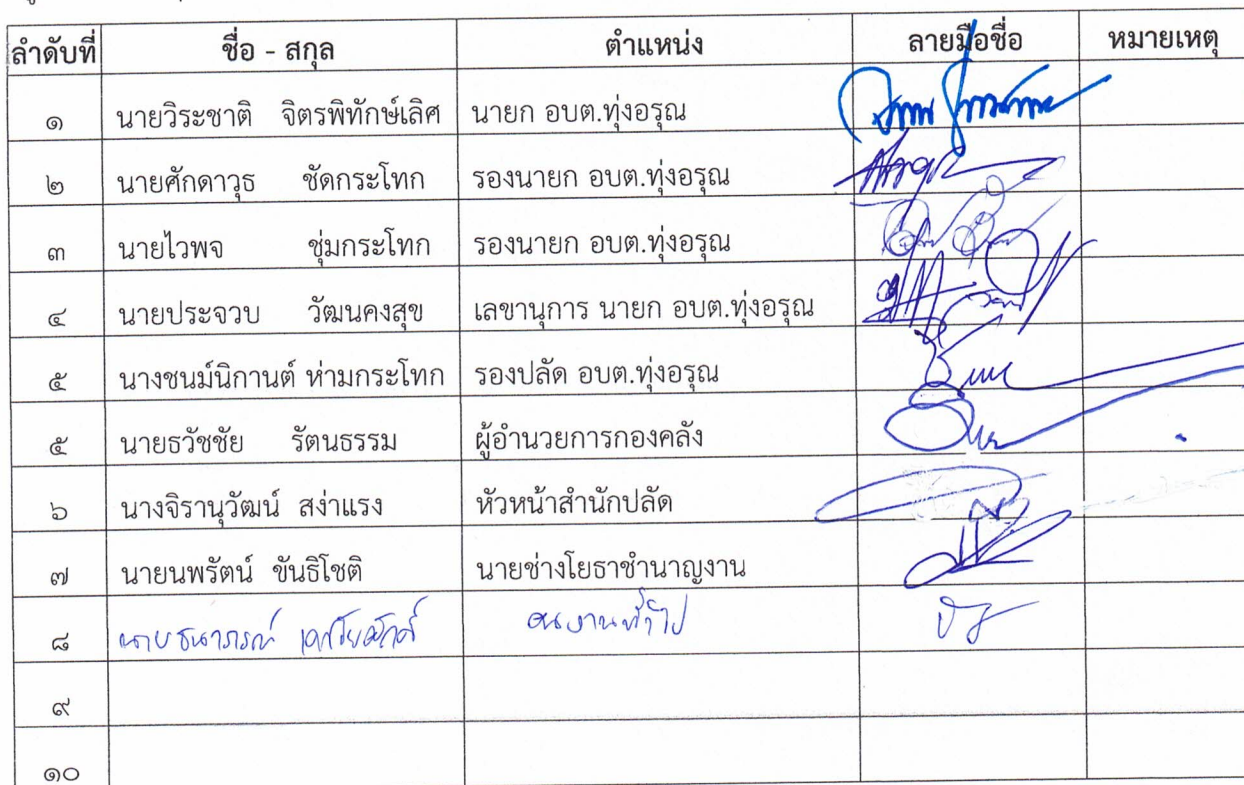 ลำดับที่ ชื่อ - สกุล ตำแหน่ง ลายมือชื่อ หมายเหตุ
๑ นายวิระชาติ จิตรพิทักษ์เลิศ นายก อบต.ทุ่งอรุณ
๒ นายศักดาวุธ ชัดกระโทก รองนายก อบต.ทุ่งอรุณ
๓ นายไวพจ ชุ่มกระโทก รองนายก อบต.ทุ่งอรุณ
๔ นายประจวบ วัฒนคงสุข เลขานุการ นายก อบต.ทุ่งอรุณ
๕ นางชนม์นิกานต์ ห่ามกระโทก รองปลัด อบต.ทุ่งอรุณ
๕ นายธวัชชัย รัตนธรรม ผู้อำนวยการกองคลัง
๖ นางจิรานุวัฒน์ สง่าแรง หัวหน้าสำนักปลัด
๗ นายนพรัตน์ ขันธิโชติ นายช่างโยธาชำนาญงาน
๘ นายธนาภรณ์ คนงานทั่วไป
๙
๑๐